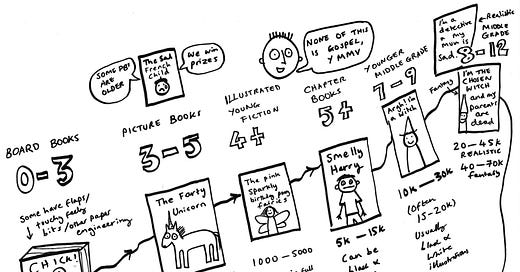 SOME PBs
ARE
OLDER
The Sad
French
Child
We win
prizes
NONE OF THIS
IS GOSPEL,
YMMV
I'm a
detective
& my
mum is
sad.
Realistic
MIDDLE
GRADE
8-12
Fantasy
I'M THE
CHOSEN
WITCH
and my
parents
are
dead
20-45K
REALISTIC
40-70K
fantasy
YOUNGER
MIDDLE GRADE
7-9
Argh! I'm
a witch
10K-30K
(often
15-20K)
Usually
black &
white
illustrations
CHAPTER
BOOKS
5+
Smelly
Harry
5K-15K
Can be
black &
ILLUSTRATED
YOUNG
FICTION
4+
The pink
sparkly
birthday pony
fairies
1000-5000
full
PICTURE BOOKS
3-5
The Farty
Unicorn
BOARD BOOKS
0-3
Some have flaps/
touchy feely
bits/other paper
engineering
CHICK!